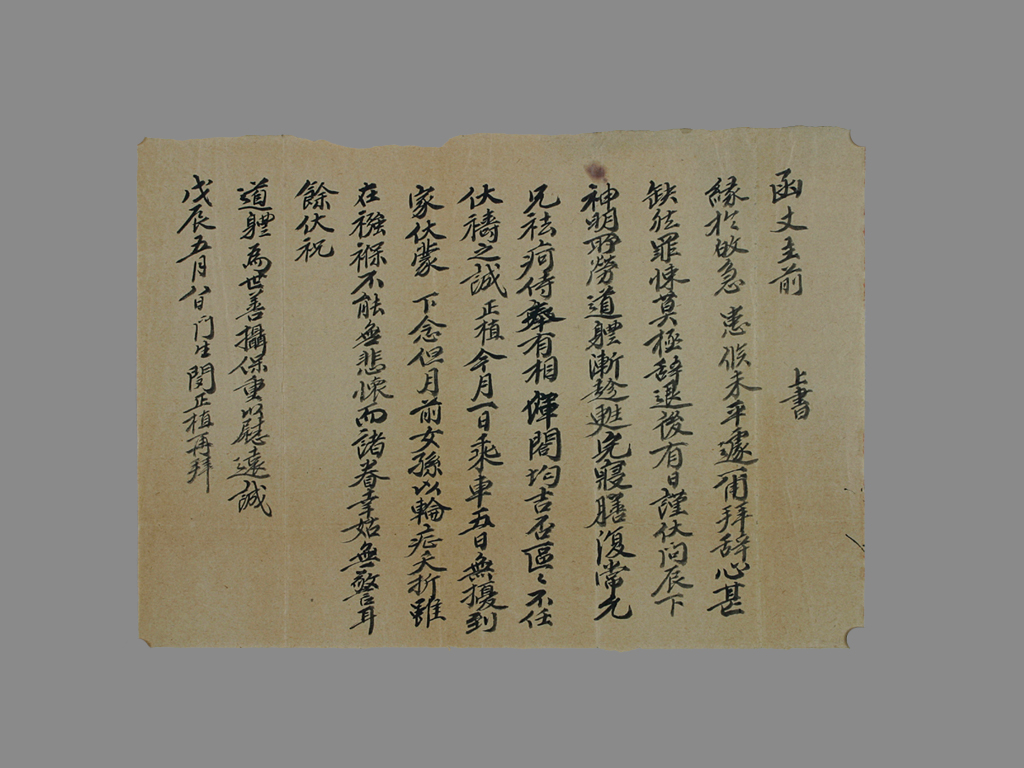 函丈主前 上書
緣於故急 患候未平遽爾拜辞心甚
缺然罪悚莫極辞退後有日謹伏問辰下
神明所勞道體漸趁甦完寢膳復常允
兄祛痾侍率有相渾閤均吉否區〻不任
伏禱之誠正植今月一日乘車五日無擾到
家伏蒙 下念但月前女孫以輪症夭折雖
在襁褓不能無悲懷而諸眷幸姑無警耳
餘伏祝
道體爲世善攝保重以慰遠誠
戊辰五月八日門生閔正植再拜